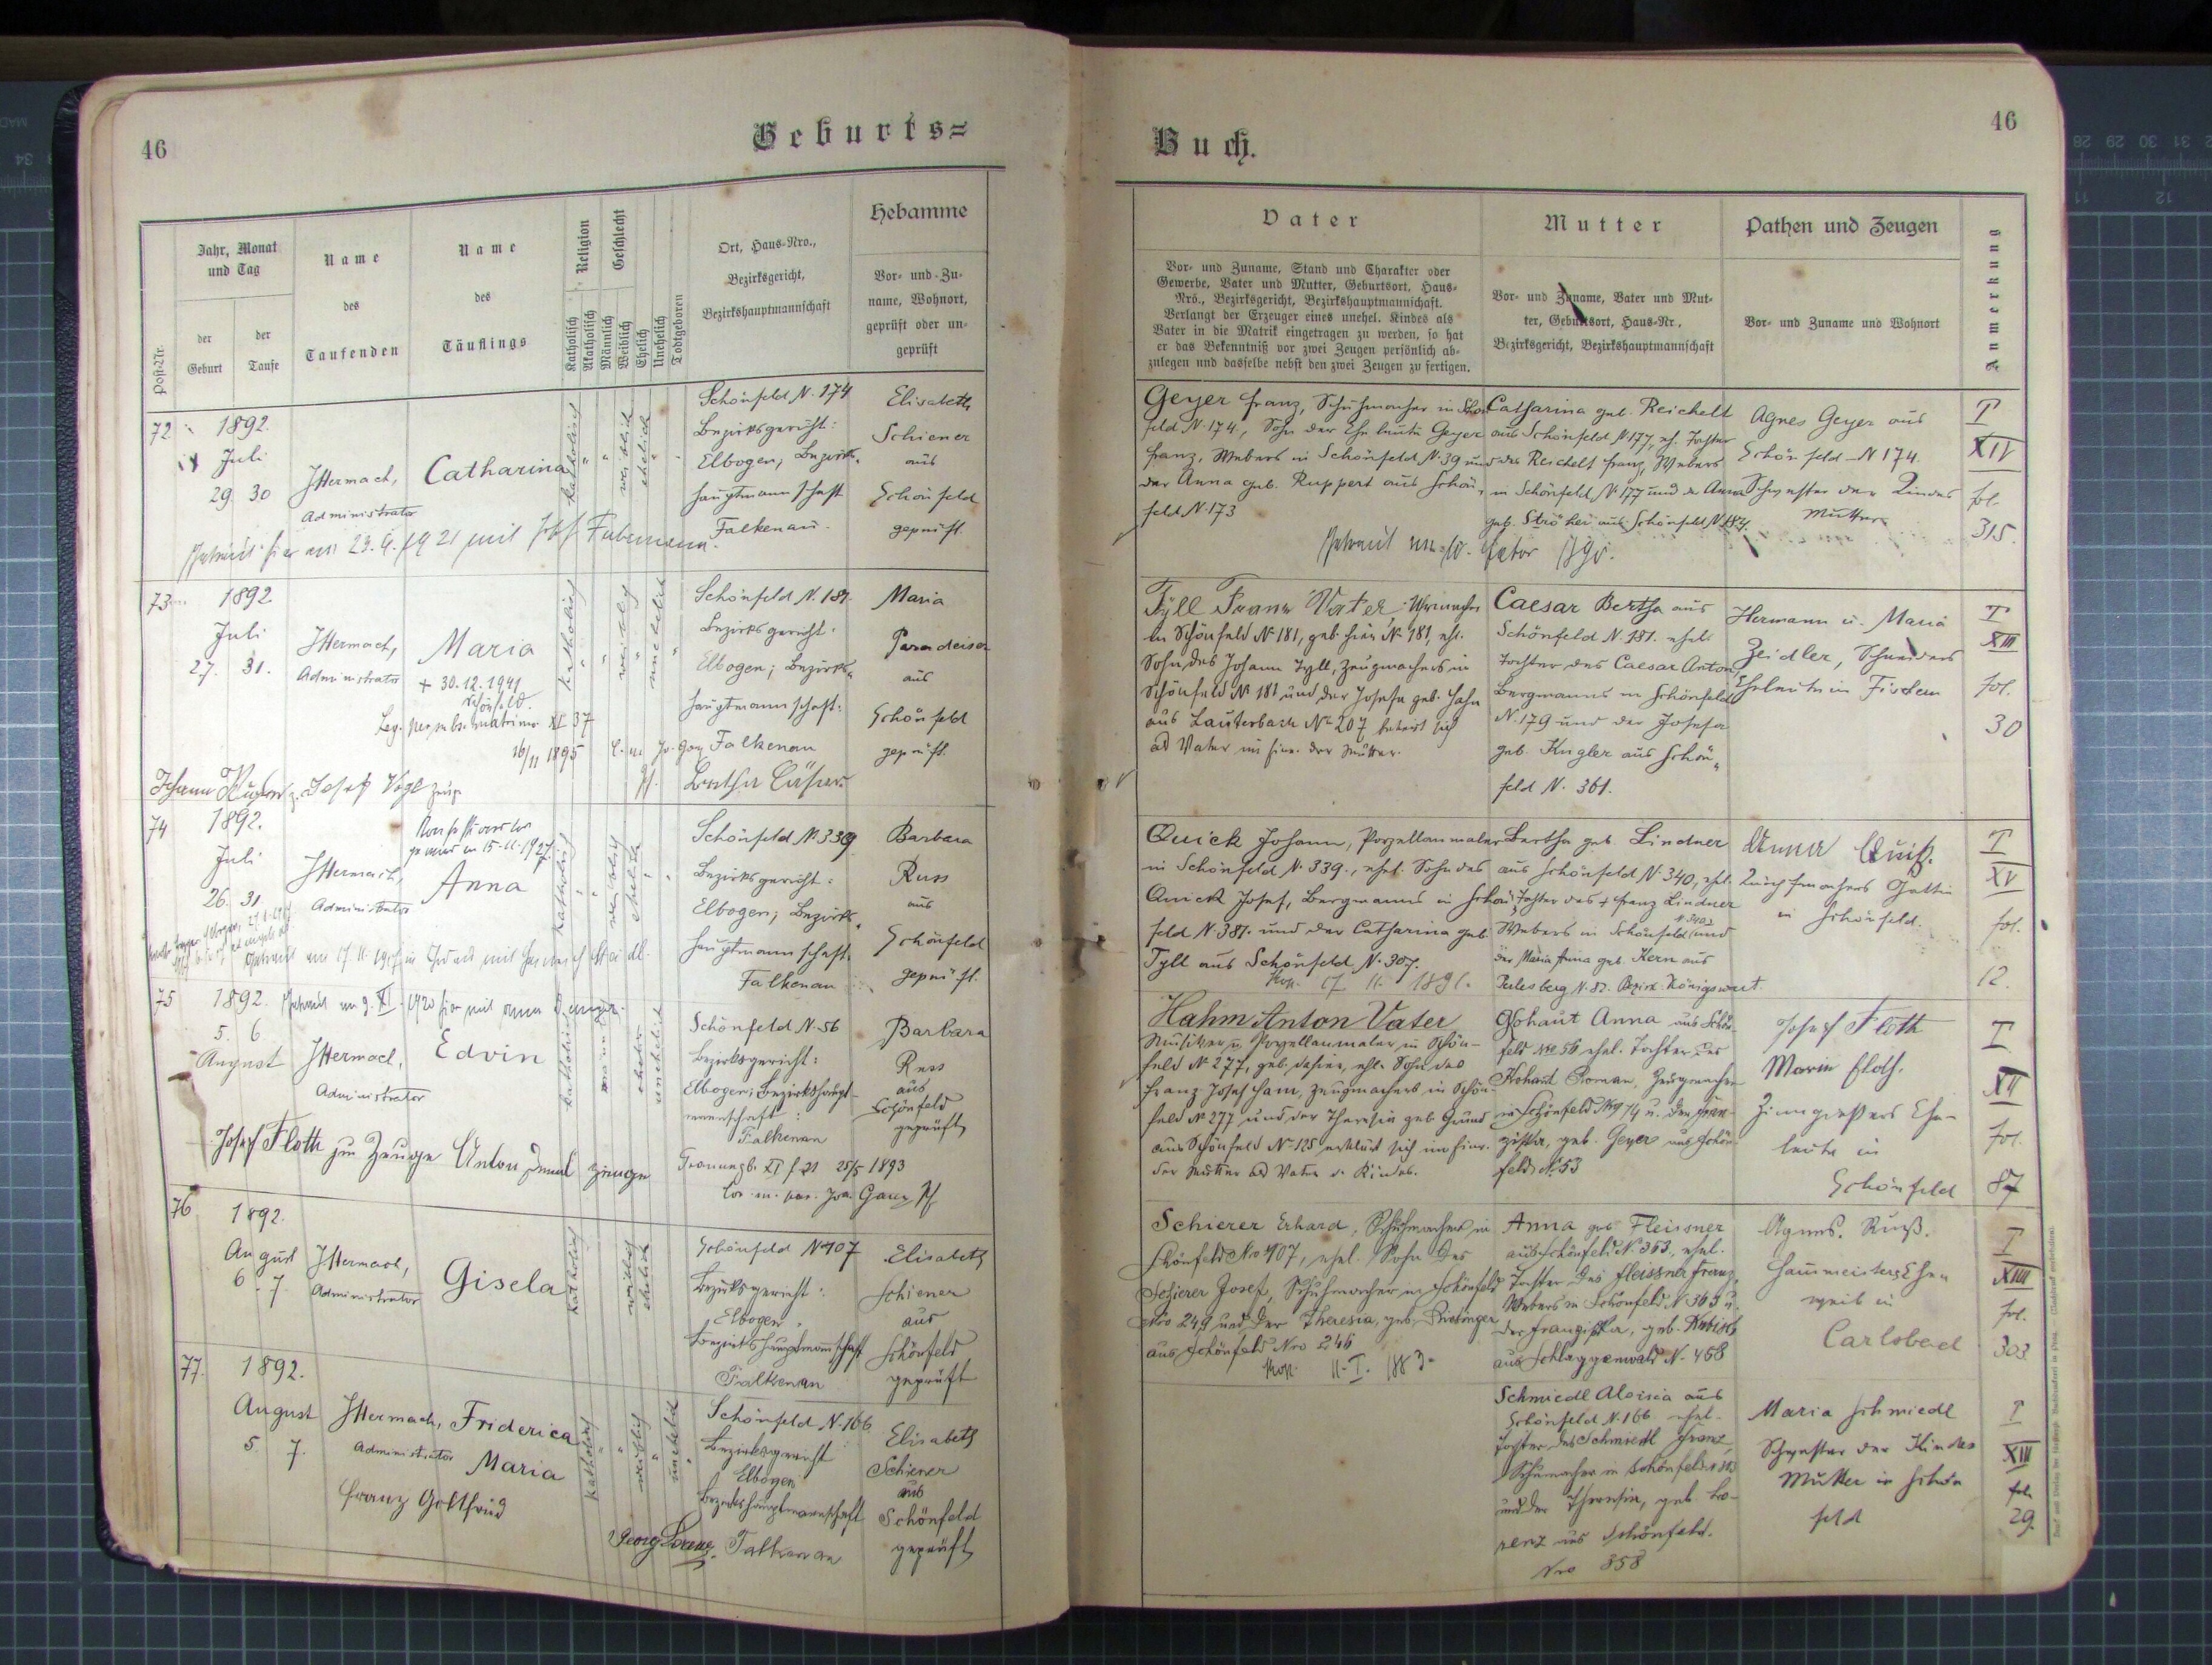 46
Geburts=
Post-Nr.
Jahr, Monat
und Tag
der
Geburt
der
Taufe
Name
des
Taufenden
Name
des
Täuflings
Religion
Katholisch
Akatholisch
Geschlecht
Männlich
Weiblich
Ehelich
Unehelich
Todtgeboren
Ort, Haus-Nro.,
Bezirksgericht,
Bezirkshauptmannschaft
Hebamme
Vor- und Zu-
name, Wohnort,
geprüft oder un-
geprüft
72
1892.
Juli
29. 30
J. Hermach,
Administrator
Catharina
katholisch
weiblich
ehelich
Schönfeld N. 174
Bezirksgericht:
Elbogen; Bezirks-
hauptmannschaft
Falkenau.
Elisabeth
Schiener
aus
Schönfeld
geprüft.
73
1892
Juli
27. 31.
J. Hermach,
Administrator
Maria
+ 30.12.1941
Schönfeld.
katholisch
weiblich
unehelich
Schönfeld N. 181.
Bezirksgericht:
Elbogen; Bezirks-
hauptmannschaft:
Falkenau
Maria
Paradeiser
aus
Schönfeld
geprüft.
16/11 1895
Josef Vogl Zeuge
74
1892.
Juli
26. 31
J. Hermach,
Administrator
Anna
katholisch
weiblich
ehelich
Schönfeld N. 339
Bezirksgericht:
Elbogen; Bezirks-
hauptmannschaft:
Falkenau
Barbara
Russ
aus
Schönfeld
geprüft.
75
1892.
5. 6
August
J. Hermach,
Administrator
Edvin
katholisch
männlich
unehelich
Schönfeld N. 56
Bezirksgericht:
Elbogen; Bezirkshaupt-
mannschaft:
Falkenau
Barbara
Russ
aus
Schönfeld
geprüft
Josef Floth zu Zeuge Anton
Zeuge
25/5 1893
76
1892.
August
6. 7.
J. Hermach,
Administrator
Gisela
katholisch
weiblich
ehelich
Schönfeld N 407
Bezirksgericht:
Elbogen
Bezirkshauptmannschaft
Falkenau
Elisabeth
Schiener
aus
Schönfeld
geprüft
77.
1892.
August
5. 7.
J. Hermach,
Administrator
Friderica
Maria
Franz Gottfried
katholisch
weiblich
unehelich
Schönfeld N. 166
Bezirksgericht
Elbogen
Bezirkshauptmannschaft
Falkenau
Elisabeth
Schiener
aus
Schönfeld
geprüft
46
Buch.
Vater
Vor- und Zuname, Stand und Charakter oder
Gewerbe, Vater und Mutter, Geburtsort, Haus-
Nro., Bezirksgericht, Bezirkshauptmannschaft.
Verlangt der Erzeuger eines unehel. Kindes als
Vater in die Matrik eingetragen zu werden, so hat
er das Bekenntniß vor zwei Zeugen persönlich ab-
zulegen und dasselbe nebst den zwei Zeugen zu fertigen.
Mutter
Vor- und Zuname, Vater und Mut-
ter, Geburtsort, Haus-Nr.,
Bezirksgericht, Bezirkshauptmannschaft
Pathen und Zeugen
Vor- und Zuname und Wohnort
Anmerkung
Geyer Franz, Schuhmacher in Schön-
feld N. 174, Sohn der Eheleute Geyer
Franz, Webers in Schönfeld N. 39 und
der Anna geb. Ruppert aus Schön-
feld N. 173
Catharina geb. Reichelt
aus Schönfeld N 177, eh. Tochter
des Reichelt Franz, Webers
in Schönfeld N. 177 und der Anna
geb. Ströher aus Schönfeld N. 184.
Agnes Geyer aus
Schönfeld N 174.
Schwester der Kindes
Mutter
I
XIV
fol.
315.
Tyll Franz Vater
in Schönfeld N. 181, geb. hier N. 181, ehl.
Sohn des Johann Tyll, Zeugmachers in
Schönfeld N. 181 und der Josefa geb. Hahn
aus Lauterbach N. 207 bekennt sich
als Vater im Einv. der Mutter.
Caesar Bertha aus
Schönfeld N. 181. ehel.
Tochter des Caesar Anton,
Bergmanns in Schönfeld
N. 179 und der Josefa
geb. Kugler aus Schön-
feld N. 361.
Hermann u. Maria
Zeidler, Schneiders
Eheleute in Fischern
I
XIII
fol.
30
Quick Johann, Porzellanmaler
in Schönfeld N. 339., ehel. Sohn des
Quick Josef, Bergmanns in Schön-
feld N. 381. und der Catharina geb.
Tyll aus Schönfeld N. 307.
17. 11. 1891.
Bertha geb. Lindner
aus Schönfeld N. 340, ehel.
Tochter des + Franz Lindner
Webers in Schönfeld und
der Maria Anna geb. Kern aus
Perlesberg N. 87. Bezirk Königswart.
Anna Quik.
Gattin
in Schönfeld.
I
XV
fol.
12.
Hahm Anton Vater
Musiker u. Porzellanmaler in Schön-
feld N. 277, geb. daselbst, ehl. Sohn des
Franz Josef Ham, Zeugmachers in Schön-
feld N. 277 und der Theresia geb. Grund
aus Schönfeld N. 125 erklärt sich im Einv.
der Mutter als Vater d. Kindes.
Kohaut Anna aus Schön-
feld Nro 56 ehel. Tochter des
Kohaut Roman, Zeugmacher
in Schönfeld Nro 74 u. der Fran-
ziska, geb. Geyer aus Schön-
feld N. 53
Josef Floth
Maria Floth.
Zinngießers Ehe-
leute in
Schönfeld
I
XII
fol.
87
Schierer Erhard, Schuhmacher in
Schönfeld Nro 407, ehel. Sohn des
Schierer Josef, Schuhmacher in Schönfeld
Nro 249 und der Theresia, geb.
aus Schönfeld Nro 246
11. I. 1883
Anna geb. Fleissner
aus Schönfeld N. 363., ehel.
Tochter des Fleissner Franz,
Webers in Schönfeld N. 363 u.
der Franziska, geb. Kubisch
aus Schlaggenwald N. 468
Agnes. Ruß.
Hausmeisters Ehe-
weib in
Carlsbad
I
XIII
fol.
303
Schmiedl Aloisia aus
Schönfeld N. 166 ehel.
Tochter des Schmiedl Franz,
Schumacher in Schönfeld
und der Theresia, geb. Lo-
renz aus Schönfeld.
Nro 358
Maria Schmiedl
Schwester der Kindes
Mutter in Schön
feld
I
XIII
fol.
29.